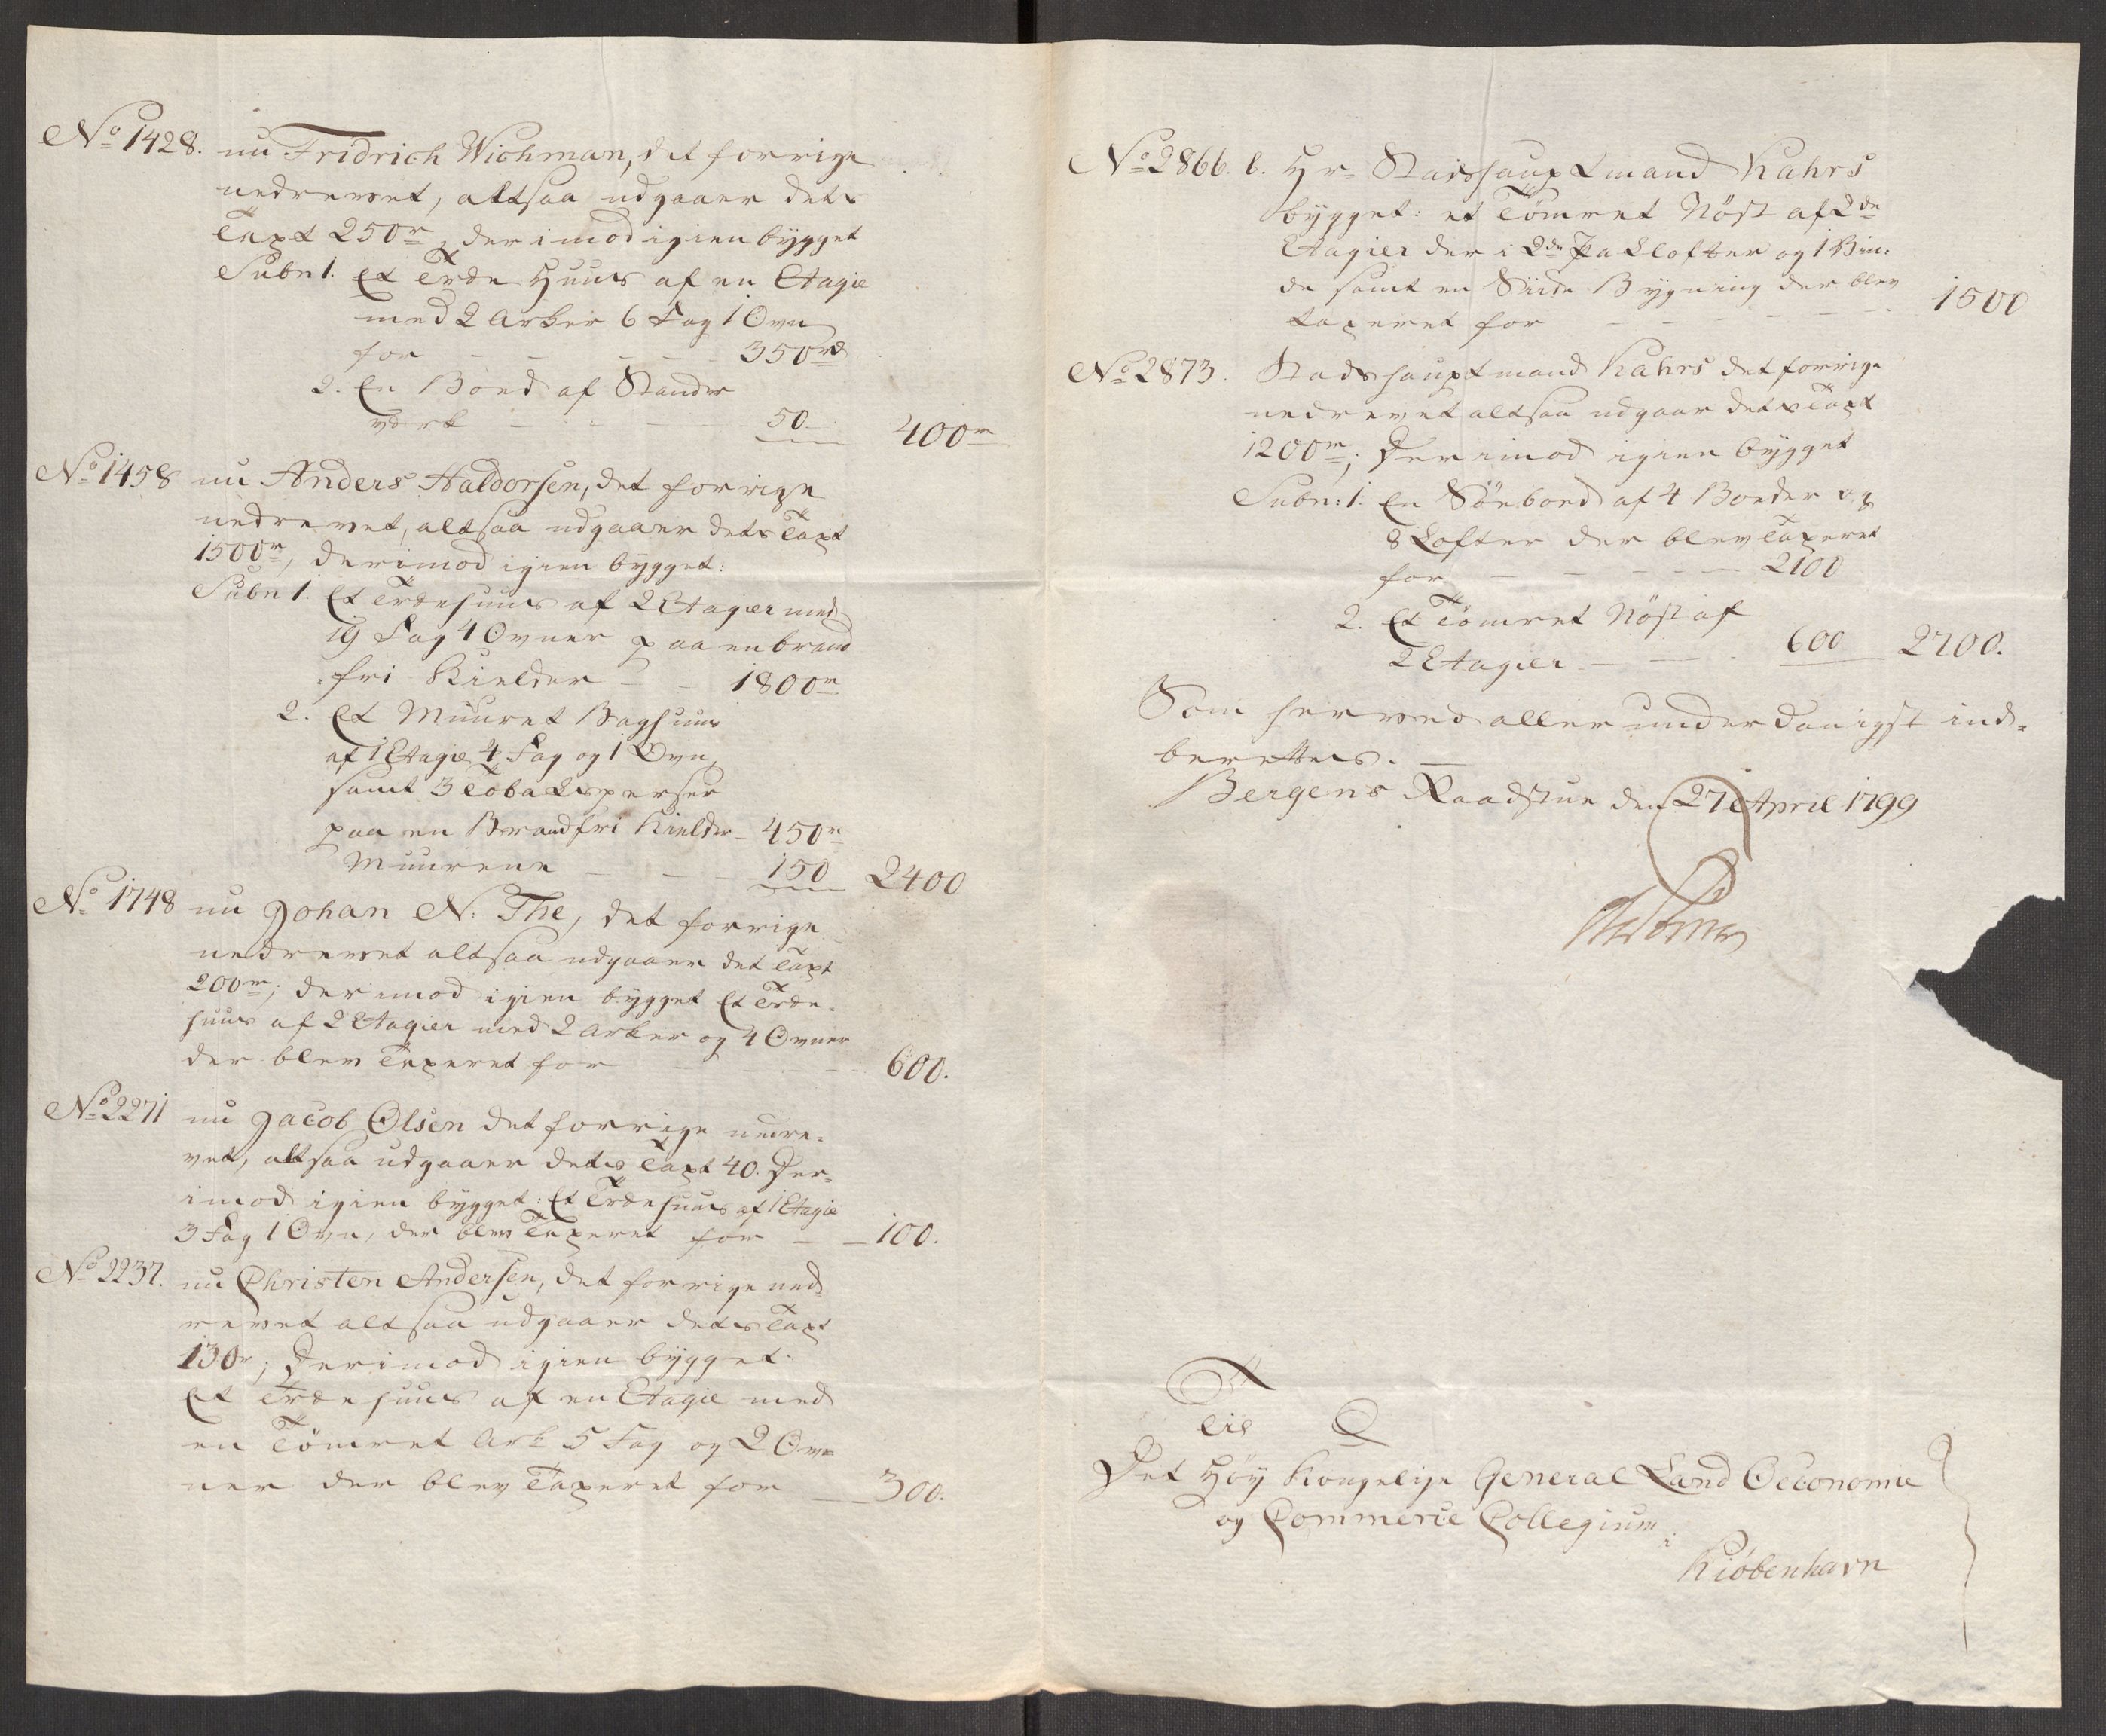 No 1428. nu Fridrich Wichman, det forrige
nedrevet, altsaa udgaaer dets
Taxt 250 r, derimod igien bygget
Subn 1. Et Træe Huus af en Etagie
med 2 Arker 6 Fag 1 Ovn
for - - - - 350 rd
2. En Boed af Stander
værk - - - - 50 - 400 r
No 1458 nu Anders Haldorsen, det forrige
nedrevet, altsaa udgaaer dets Taxt
1500 r, derimod igien bygget:
Subn 1. Et Træehuus af 2 Etagier med
19 Fag 4 Ovner paa en brand
fri Kielder - - 1800 r
2. Et Muuret Baghuus
af 1 Etagie 4 Fag og 1 Ovn,
samt 3 Tobaksperser
paa en Brandfri Kielder - 450 r
Muurene - - - 150 2400
No 1748 nu Johan N: The, det forrige
nedrevet altsaa udgaaer det Taxt
200 r; derimod igien bygget Et Træe-
huus af 2 Etagier med 2 Arker og 4 Ovner
der blev Taxeret for - - - 600.
No 2271 nu Jacob Olsen det forrige nedre-
vet, altsaa udgaaer dets Taxt 40. Der-
imod igien bygget: Et Træehuus af 1 Etagie
3 Fag 1 Ovn, der blev Taxeret for - - 100.
No 2237. nu Christen Andersen, det forrige ned
revet altsaa udgaaer dets Taxt
130 r; Derimod igien bygget:
Et Træehuus af en Etagie med
en Tömret Ark 5 Fag og 2 Ov-
ner der blev Taxeret for - - 300.
No 2866. b. Hr Stadshauptmand Kahrs
bygget: et Tömret Nöst af 2de
Etagier der i 2de Paklofter og 1 Bin-
de samt en Siide Bygning der blev
taxeret for - - - - - - 1500
No 2873. Stadshauptmand Kahrs det forrige
nedrevet altsaa udgaar dets Taxt
1200 r; Derimod igien bygget
Subn: 1. En Söeboed af 4 Boeder og
8 Lofter der blev Taxeret
for - - - - - 2100
2. Et Tömret Nöst af
2 Etagier - - - 600 2700.
Som herved allerunderdanigst ind-
berettes. -
Bergens Raadstue den 27 April 1799
Til
Det Höy Kongelige General Land Oeconomie
og Commerce Collegium
i
Kiöbenhavn